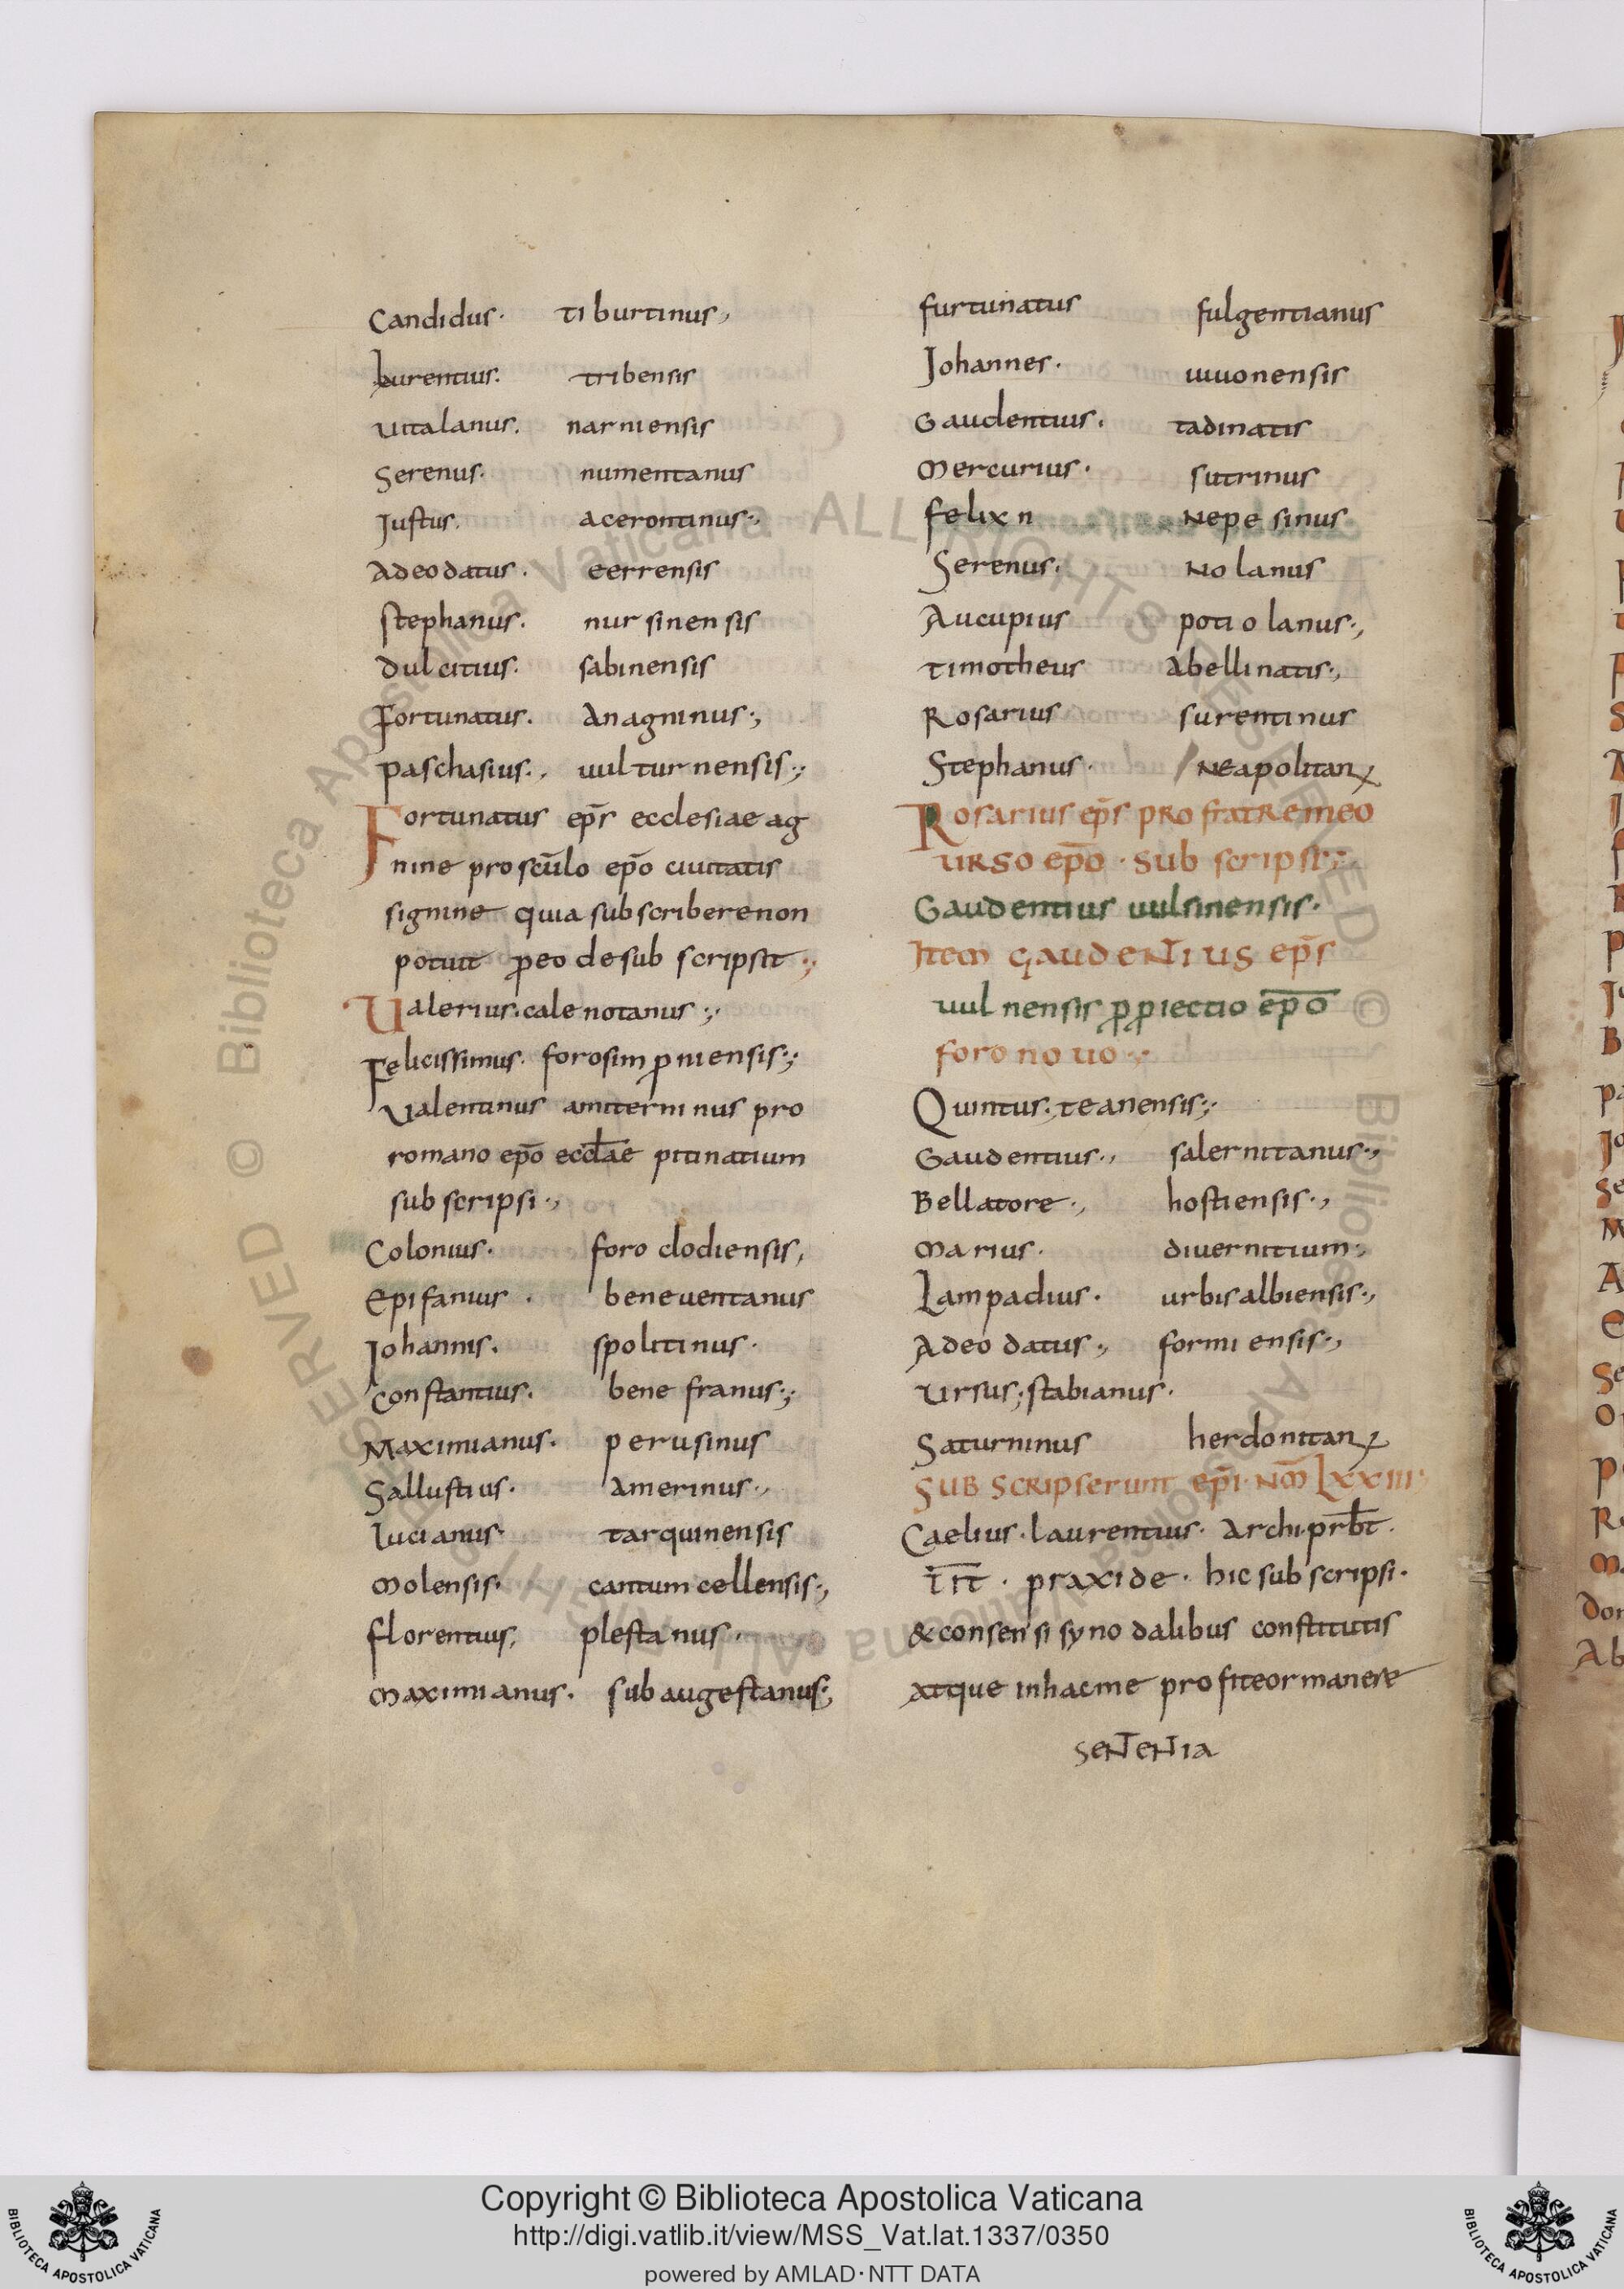 Candidus. tiburtinus,
Laurentius. tribensis
uitalanus. narniensis
Serenus. numentanus
Justus. acerontinus.,
Adeodatus. eerrensis
stephanus. nursinensis
dulcitius. sabinensis
Fortunatus. Anagninus.,
paschasius., uulturnensis.,
Fortunatus ep̄s ecclesiae ag
nine pro scūlo ep̄o ciuitatis
signine quia subscribere non
potuit ꝓ eo de subscripsit.,
Ualerius. calenotanus.,
Felicissimus. forosimꝓniensis.,
Ualentinus amiterninus pro
romano ep̄o eccl̄ae pitinatium
subscripsi.,
Colonius. foro clodiensis,
Epifanius. beneuentanus
Johannis. spolitinus.
Constantius. bene franus.,
Maximianus. perusinus
Sallustius. Amerinus.,
lucianus. tarquinensis
molensis. cantumcellensis.,
florentius, plestanus.
maximianus. sub augestanus.,
furtunatus fulgentianus
Johannes. uiuonensis
Gaudentius. tadinatis
mercurius. sutrinus
felix n Nepesinus
Serenus. Nolanus
Aucupius potiolanus.,
timotheus Abellinatis.,
Rosarius surentinus
Stephanus. Neapolitanꝰ
Rosarius ep̄s pro fratre meo
urso ep̄o. subscripsi.,
Gaudentius uulsinensis.
Item gaudentius ep̄s
uulnensis ꝓ ꝓiectio ep̄o
foro nouo.,
Quintus. teanensis.,
Gaudentius., salernitanus.,
Bellatore., hostiensis.,
marius. diuernitium.,
Lampadius. urbis albiensis.,
Adeodatus., formi ensis.,
Ursus; stabianus.
Saturninus herdonitanꝰ
SUBSCRIPserunt ep̄i. Nm̄ Lxxiii
Caelius. laurentius. Archi.prb̄t.
t̄r̄t. praxide. hic subscripsi.
& consensi synodalibus constitutis
Atque in hac me profiteor manere
sententia
Copyright © Biblioteca Apostolica Vaticana
http://digi.vatlib.it/view/MSS_Vat.lat.1337/0350
powered by AMLAD·NTT DATA
BIBLIOTECA APOSTOLICA VATICANA
BIBLIOTECA APOSTOLICA VATICANA